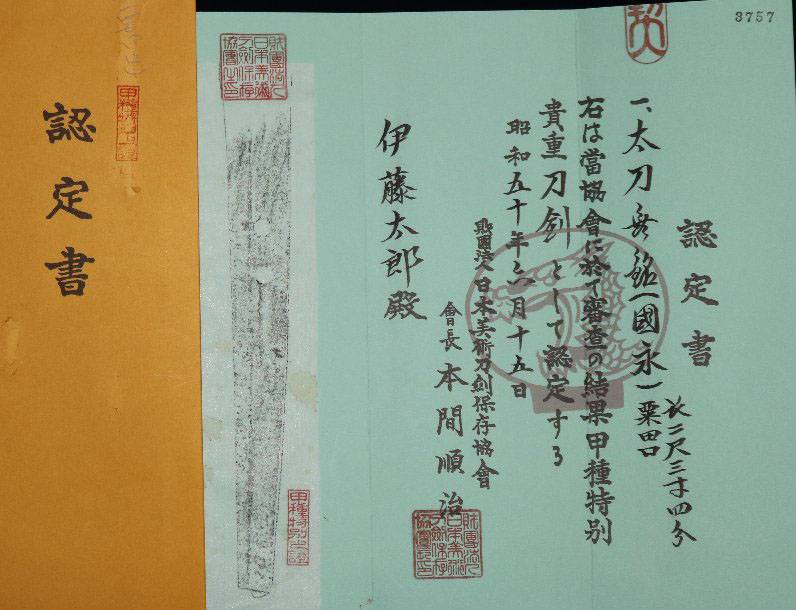 3757
認定書
一、太刀 無銘(國永)粟田口
長二尺三寸四分
右は當協會に於て審査の結果甲種特別
貴重刀剣として認定する
昭和五十年六月十五日
財團法人日本美術刀剣保存協會
會長 本間順治
伊藤太郎殿
財團法人日本美術刀剣保存協會之印
甲種特別之證
認定書